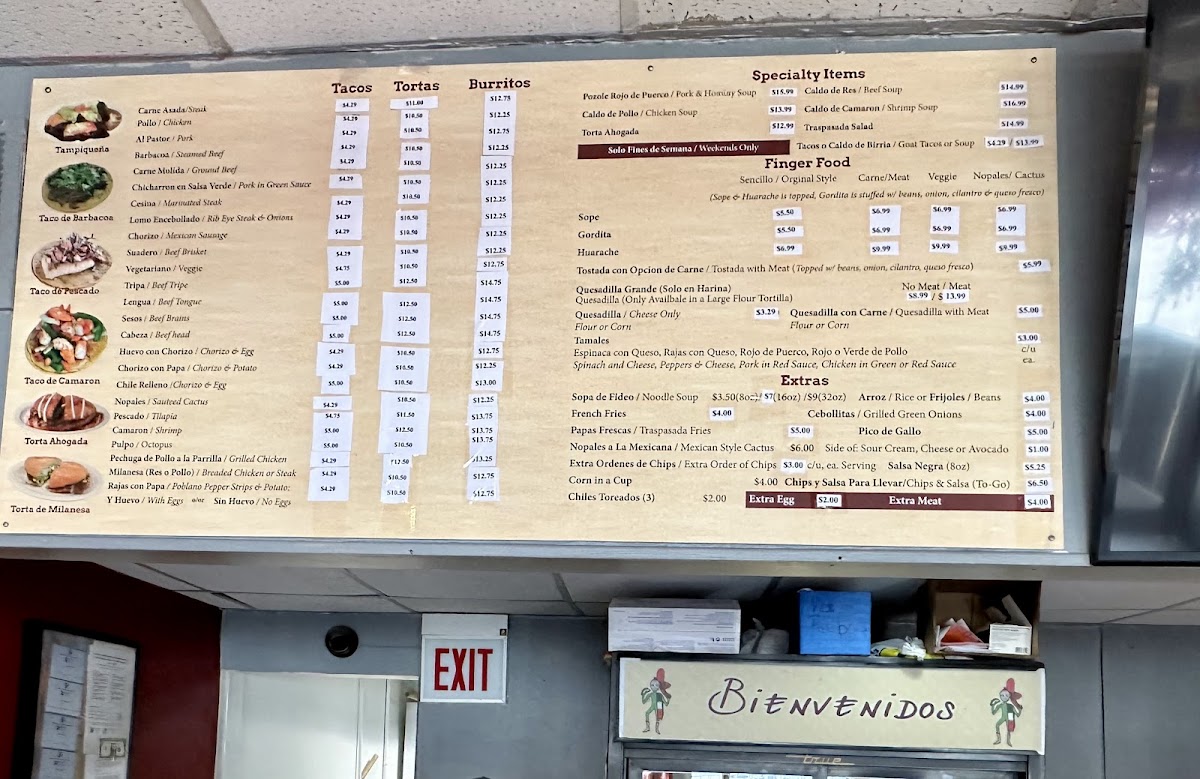 Tacos Tortas Burritos
Carne Asada/Steak $4.29 $11.00 $12.75
Pollo / Chicken $4.29 $10.50 $12.25
Al Pastor / Pork $4.29 $10.50 $12.75
Barbacoa / Steamed Beef $4.29 $10.50 $12.25
Carne Molida / Ground Beef $4.29 $10.50 $12.25
Chicharron en Salsa Verde / Pork in Green Sauce $4.29 $10.50 $12.25
Cesina / Marinated Steak $4.29 $10.50 $12.25
Lomo Encebollado / Rib Eye Steak & Onions $4.29 $10.50 $12.25
Chorizo / Mexican Sausage $4.29 $10.50 $12.25
Suadero / Beef Brisket $4.29 $10.50 $12.25
Vegetariano / Veggie $4.75 $10.50 $12.75
Tripa / Beef Tripe $5.00 $12.50 $14.75
Lengua / Beef Tongue $5.00 $12.50 $14.75
Sesos / Beef Brains $5.00 $12.50 $14.75
Cabeza / Beef head $5.00 $12.50 $14.75
Huevo con Chorizo / Chorizo & Egg $4.29 $10.50 $12.75
Chorizo con Papa / Chorizo & Potato $4.29 $10.50 $12.25
Chile Relleno /Chorizo & Egg $5.00 $10.50 $13.00
Nopales / Sauteed Cactus $4.29 $10.50 $12.25
Pescado / Tilapia $4.75 $11.50 $13.75
Camaron / Shrimp $5.00 $12.50 $13.75
Pulpo / Octopus $5.00 $10.50 $13.75
Pechuga de Pollo a la Parrilla / Grilled Chicken $4.29 $12.50 $13.25
Milanesa (Res o Pollo) / Breaded Chicken or Steak $4.29 $10.50 $12.75
Rajas con Papa / Poblano Pepper Strips & Potato; $4.29 $10.50 $12.75
Y Huevo / With Eggs o/or Sin Huevo / No Eggs
Tampiqueña
Taco de Barbacoa
Taco de Pescado
Taco de Camaron
Torta Ahogada
Torta de Milanesa
Specialty Items
Pozole Rojo de Puerco / Pork & Hominy Soup $15.99 Caldo de Res / Beef Soup $14.99
Caldo de Pollo / Chicken Soup $13.99 Caldo de Camaron / Shrimp Soup $16.99
Torta Ahogada $12.99 Traspasada Salad $14.99
Solo Fines de Semana / Weekends Only Tacos o Caldo de Birria / Goat Tacos or Soup $4.29 / $13.99
Finger Food
Sencillo / Orginal Style Carne/Meat Veggie Nopales/ Cactus
(Sope & Huarache is topped, Gordita is stuffed w/ beans, onion, cilantro & queso fresco)
Sope $5.50 $6.99 $6.99 $6.99
Gordita $5.50 $6.99 $6.99 $6.99
Huarache $6.99 $9.99 $9.99 $9.99
Tostada con Opcion de Carne / Tostada with Meat (Topped w/ beans, onion, cilantro, queso fresco) $5.99
Quesadilla Grande (Solo en Harina) No Meat / Meat
Quesadilla (Only Availbale in a Large Flour Tortilla) $8.99 / $ 13.99
Quesadilla / Cheese Only $3.29 Quesadilla con Carne / Quesadilla with Meat $5.00
Flour or Corn Flour or Corn
Tamales $3.00
Espinaca con Queso, Rajas con Queso, Rojo de Puerco, Rojo o Verde de Pollo c/u
Spinach and Cheese, Peppers & Cheese, Pork in Red Sauce, Chicken in Green or Red Sauce ea.
Extras
Sopa de Fideo / Noodle Soup $3.50(8oz)/ $7(16oz) /$9(32oz) Arroz / Rice or Frijoles / Beans $4.00
French Fries $4.00 Cebollitas / Grilled Green Onions $4.00
Papas Frescas / Traspasada Fries $5.00 Pico de Gallo $5.00
Nopales a La Mexicana / Mexican Style Cactus $6.00 Side of: Sour Cream, Cheese or Avocado $1.00
Extra Ordenes de Chips / Extra Order of Chips $3.00 c/u, ea. Serving Salsa Negra (8oz) $5.25
Corn in a Cup $4.00 Chips y Salsa Para Llevar/Chips & Salsa (To-Go) $6.50
Chiles Toreados (3) $2.00 Extra Egg $2.00 Extra Meat $4.00
EXIT
BIENVENIDOS
true